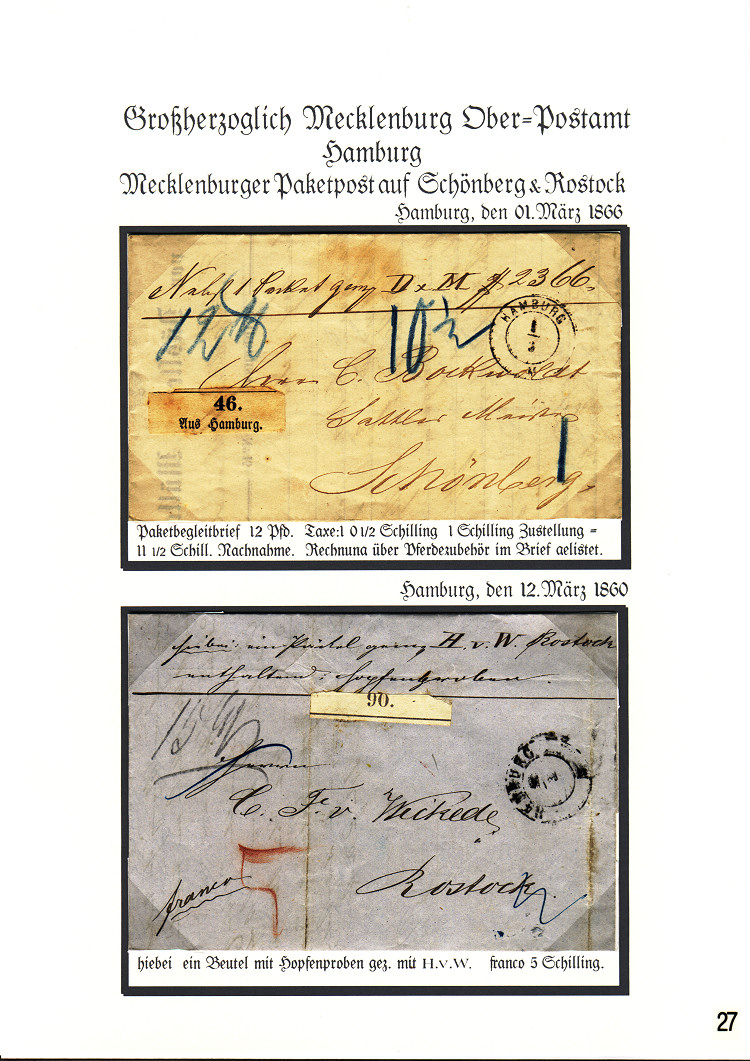 Großherzoglich Mecklenburg Ober=Postamt
Hamburg
Mecklenburger Paketpost auf Schönberg & Rostock
Hamburg, den 01. März 1866
1 Packet D M 2366
12 10½
HAMBURG
1
3
C. Bockwoldt
46.
Aus Hamburg.
Sattler Meister
1
Schönberg
Paketbegleitbrief 12 Pfd. Taxe:1 0 1/2 Schilling 1 Schilling Zustellung =
11 1/2 Schill. Nachnahme. Rechnuna über Pferdezubehör im Brief aelistet.
Hamburg, den 12. März 1860
hiebei: ein H. v. W. Rostock
enthaltend: Hopfenproben.
90.
15
HAMBURG
Herrn
C. F. v. Weckede
5
franco
Rostock
hiebei ein Beutel mit Hopfenproben gez. mit H.v.W. franco 5 Schilling.
27